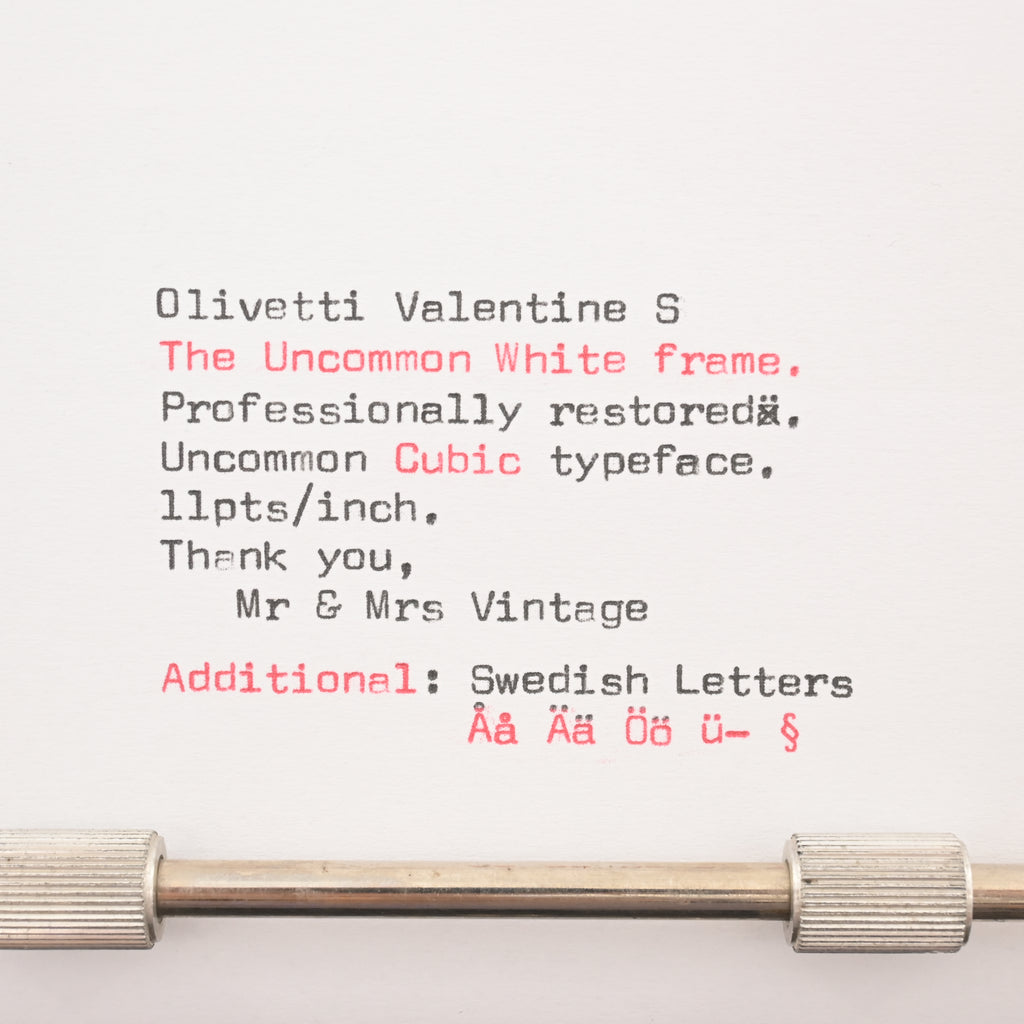 Olivetti Valentine S
The Uncommon White frame.
Professionally restored.
Uncommon Cubic typeface.
11pts/inch.
Thank you,
Mr & Mrs Vintage
Additional: Swedish Letters
Åå Ää Öö ü- §